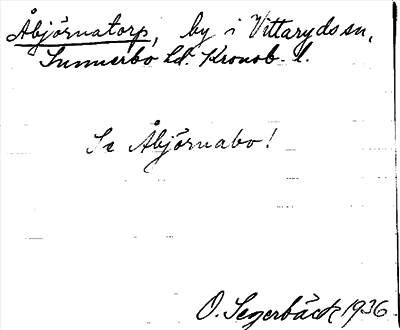 Åbjörnatorp, by i Vittaryds sn,
Sunnerbo hd. Kronob. l.
Se Åbjörnabo!
O. Segerbäck 1936